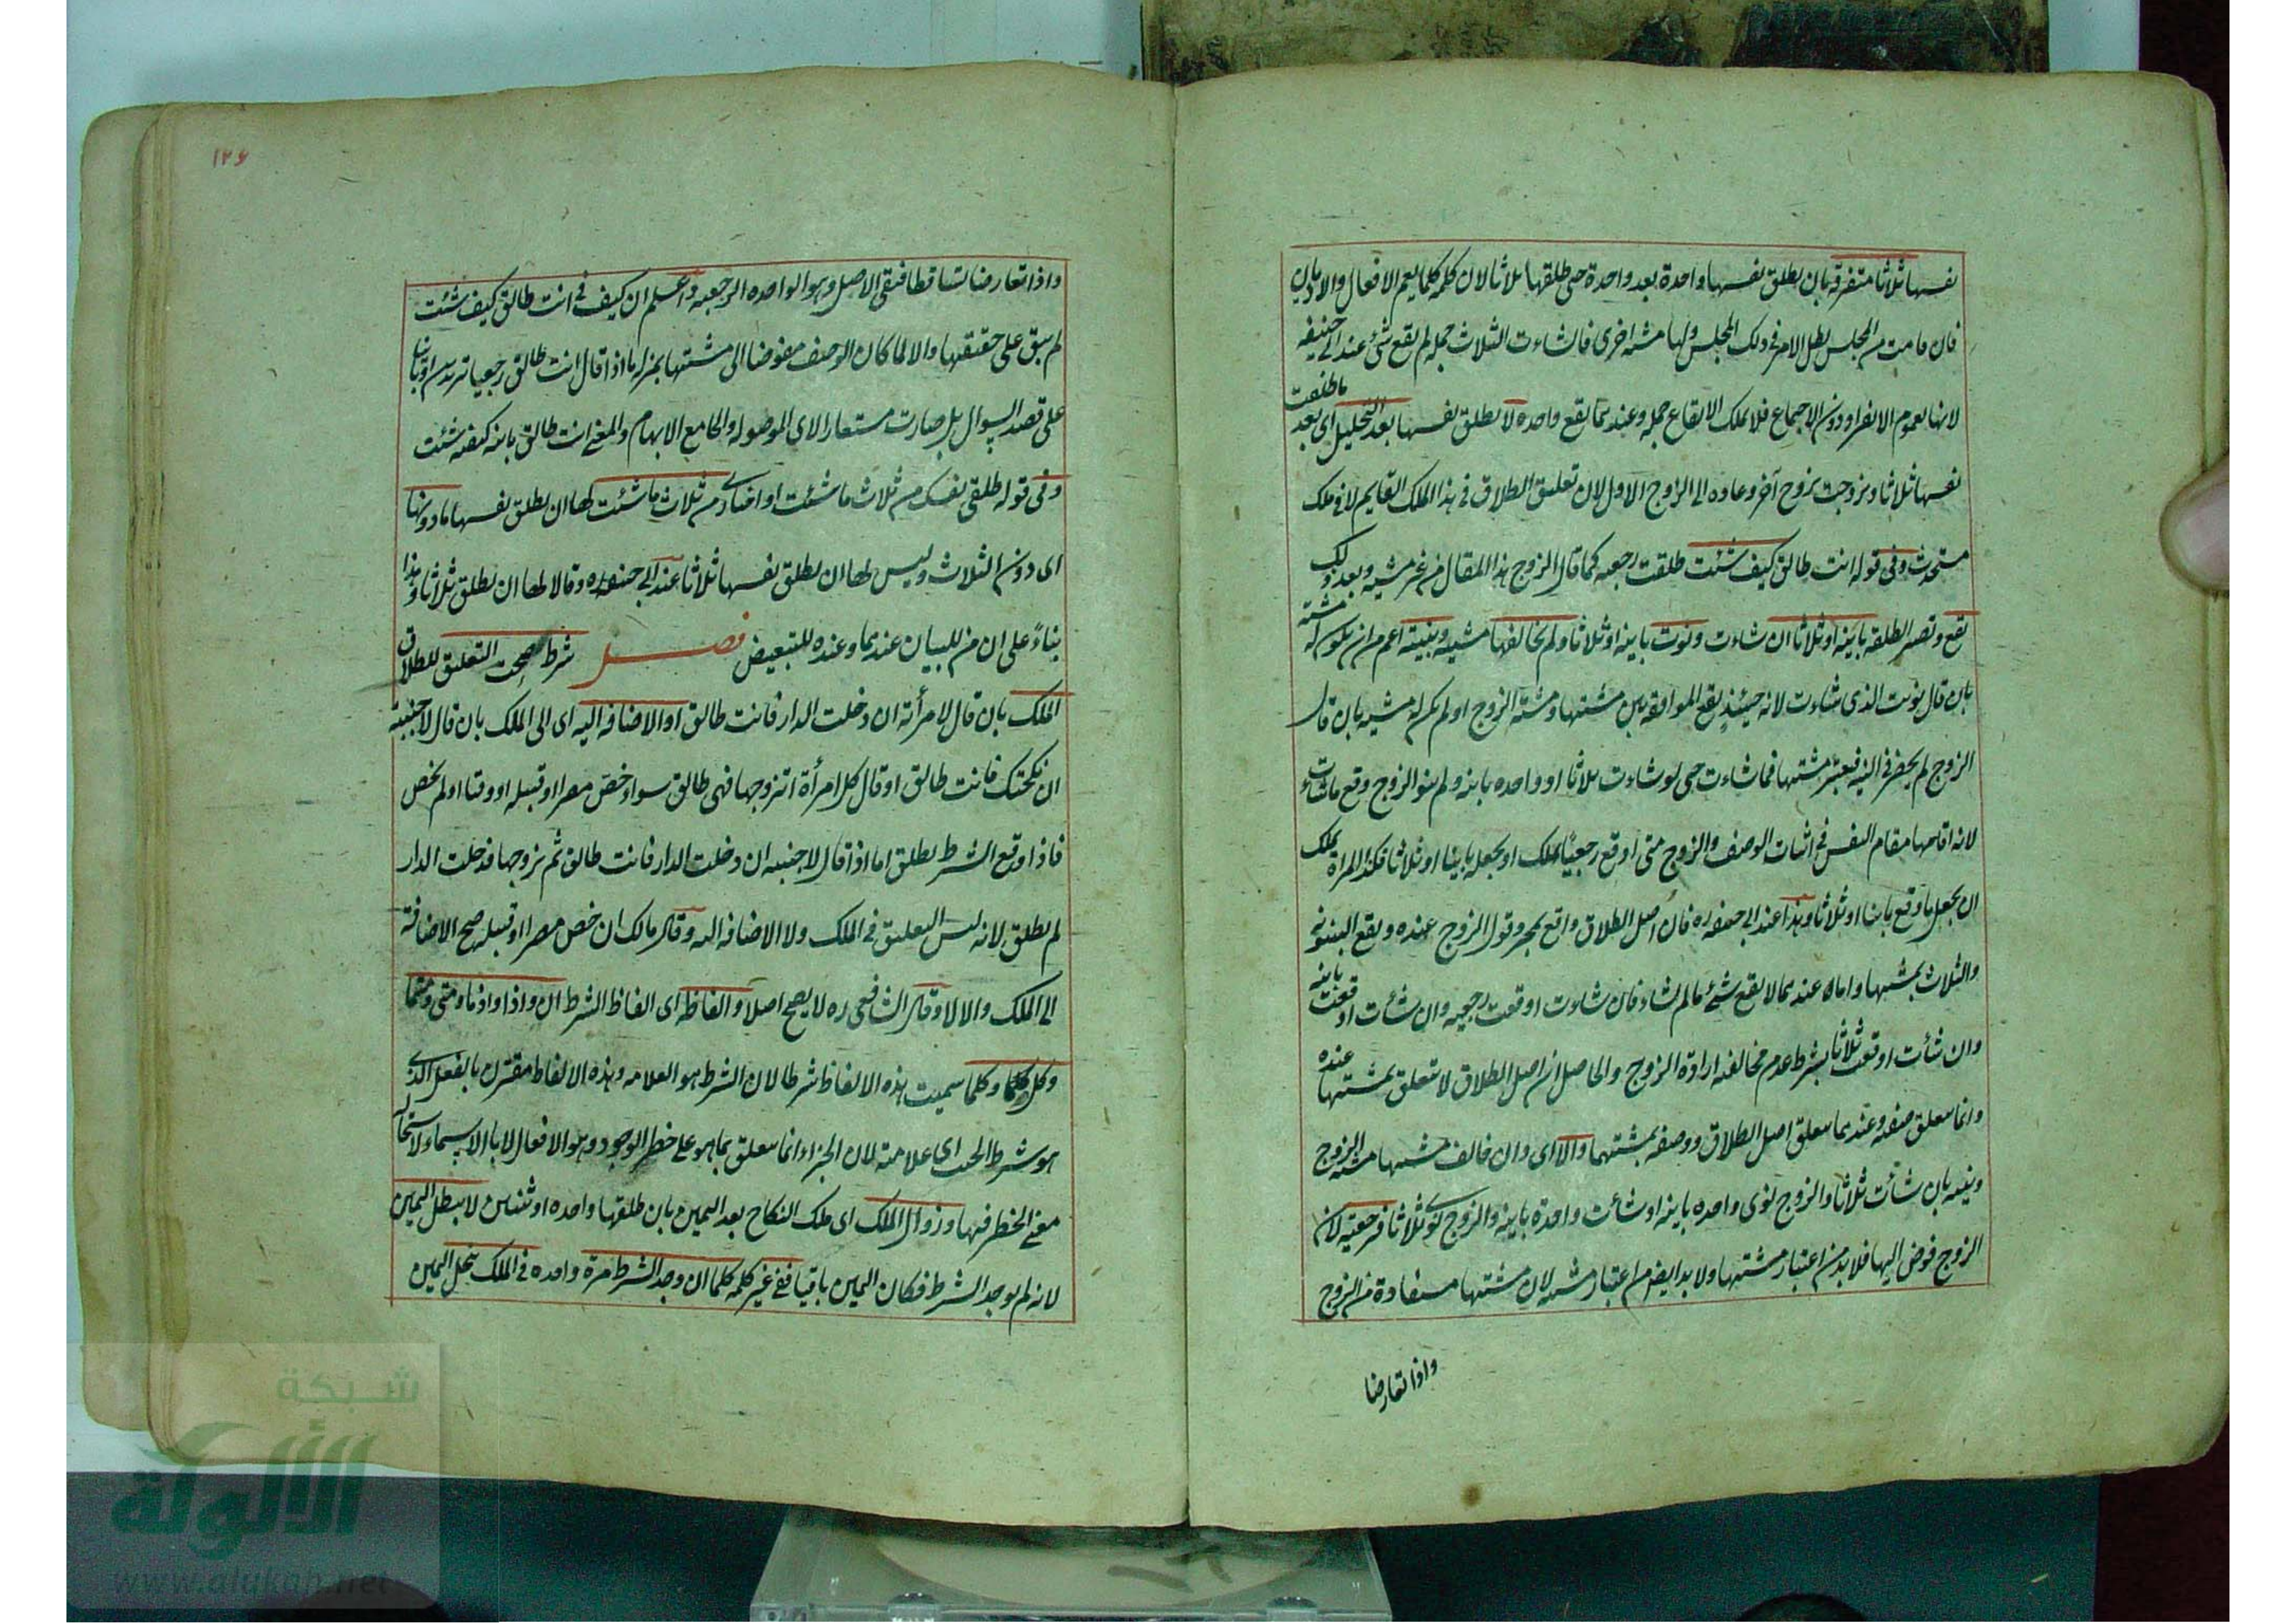 نفسها ثلاثا متفرقة بان يطلق نفسها واحدة بعد واحدة حتى طلقها ثلاثا لان كلمة كلما يعم الافعال والازمان
فان قامت من المجلس بطل الامر في ذلك المجلس ولها مشية اخرى فان شاءت الثلاث جملة لم يقع شئ عند ابي حنيفه
لانها لعموم الانفراد دون الاجتماع فلا يملك الايقاع جملة وعندهما يقع واحدة لا يطلق نفسها بعد التحليل اى بعد ما طلقت
نفسها ثلاثا وتزوجت بزوج آخر وعاده الى الزوج الاول لان تعليق الطلاق في هذا الملك القايم لا في ملك
مستحدث وفى قوله انت طالق كيف شئت طلقت رجعيه كما قال الزوج هذا المقال من غير مشيه وبعد ذلك
يقع وتصير الطلقة باينة او ثلاثا ان شاءت ونوت باينه او ثلاثا ولم يخالفها مشيه ونيته اعم من ان يكون له مشية
بان قال نويت الذى شاءت لانه حينئذ يقع الموافقه بين مشيتها ومشية الزوج او لم يكن له مشيه بان قال
الزوج لم يحضر في النيه فيعتبر مشيتها فما شاءت حتى لو شاءت ثلاثا او واحده باينه ولم ينو الزوج وقع ما شاءت
لانه اقامها مقام النفس في اثبات الوصف والزوج متى اوقع رجعيا يملك او يجعل باينا او ثلاثا فكذا المراة يملك
ان يجعل ما وقع باينا او ثلاثا وهذا عند ابي حنيفه ره فان اصل الطلاق واقع بمجرد قول الزوج عنده ويقع البينونة
والثلاث بمشيتها واما عندهما لا يقع شئ ما لم تشاء فان شاءت اوقعت رجعيه وان شأت اوقعت باينه
وان شأت اوقعت ثلاثا بشرط عدم مخالفه ارادة الزوج والحاصل ان اصل الطلاق لا يتعلق بمشيتها عنده
وانما يتعلق صفه وعندهما يتعلق اصل الطلاق ووصفه بمشيتها والا اى وان خالف مشيتها مشيه الزوج
ونيته بان شأت ثلاثا والزوج نوى واحده باينه او شأت واحدة باينه والزوج نوى ثلاثا فرجعية لان
الزوج فوض اليها فلا بد من اعتبار مشيتها ولا بد ايضا من اعتبار مشيه لان مشيتها مستفادة من الزوج
واذا تعارضا
١٢٦
واذا تعارضا تساقطا فبقى الاصل وهو الواحده الرجعيه واعلم ان كيف في انت طالق كيف شئت
لم يبق على حقيقتها والا لما كان الوصف مفوضا الى مشيتها بمنزلة ما اذا قال انت طالق رجعيا تريدين او باينا
على قصد السؤال بل صارت مستعارا لاى الموصوله والجامع الابهام والمعنى انت طالق باينه كيفه شئت
وفى قوله طلقى نفسك من ثلاث ما شئت او اختارى من ثلاث ما شئت لها ان يطلق نفسها ما دونها
اى دون الثلاث وليس لها ان يطلق نفسها ثلاثا عند ابي حنيفه ره وقالا لها ان يطلق ثلاثا وهذا
بناءً على ان من للبيان عندهما وعنده للتبعيض فصل شرط صحت التعليق للطلاق
الملك بان قال لامرأته ان دخلت الدار فانت طالق او الاضافه اليه اى الى الملك بان قال لاجنبية
ان نكحتك فانت طالق او قال كل امرأة اتزوجها فهى طالق سواء خص مصرا او قبيله او وقتا او لم يخص
فاذا وقع الشرط يطلق اما اذا قال لاجنبيه ان دخلت الدار فانت طالق ثم تزوجها فدخلت الدار
لم يطلق لانه ليس التعليق في الملك ولا الاضافه اليه وقال مالك ان خص مصرا او قبيله صح الاضافة
الى الملك والا لا وقال الشافعى ره لا يصح اصلا والفاظه اى الفاظ الشرط ان واذا واذما ومتى ومتما
وكل وكلما سميت هذه الالفاظ شرطا لان الشرط هو العلامه وهذه الالفاظ مقترن بالفعل الذى
هو شرط الحنث اى علامته لان الجزاء انما يتعلق بما هو على خطر الوجود وهو الافعال لا بالاسماء لاستحالة
معنى الخطر فيها وزوال الملك اى ملك النكاح بعد اليمين بان طلقها واحده او ثنتين لا يبطل اليمين
لانه لم يوجد الشرط فكان اليمين باقيا ففى غير كلمه كلما ان وجد الشرط مرة واحده في الملك ينحل اليمين
شبكة
الألوكة
www.alukah.net